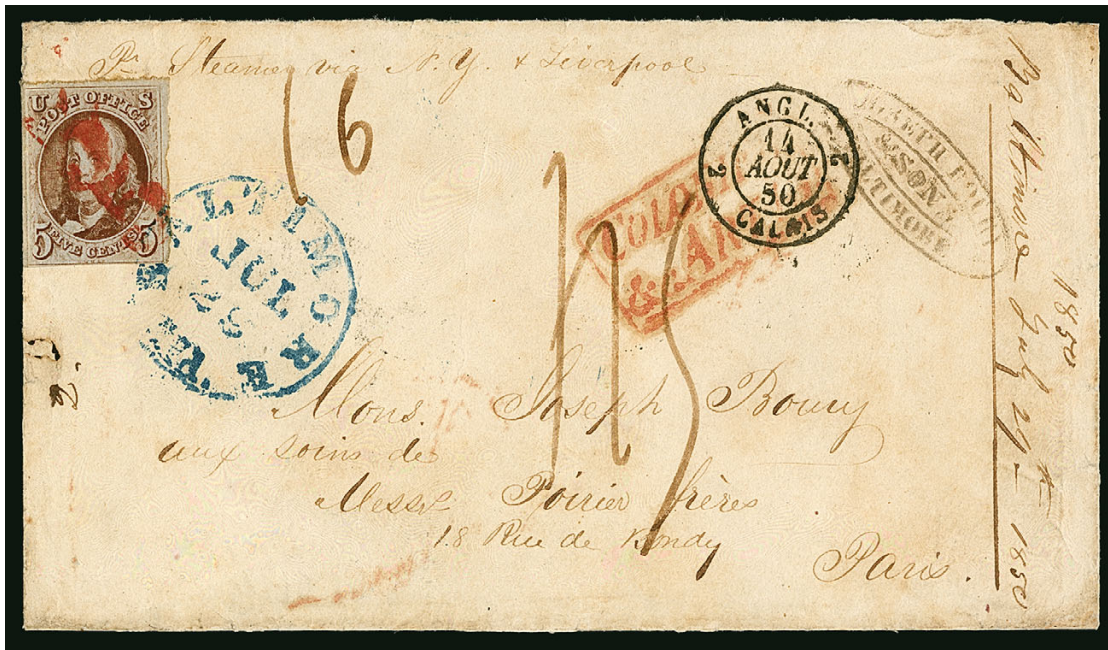 Pr Steamer via N.Y. & Liverpool
U S
POST OFFICE
5 FIVE CENTS 5
16
BALTIMORE
JUL
29
COLO
&c. ART
ANGL.
2 14 2
AOUT
50
CALAIS
& SON
BALTIMORE
Mons. Joseph Boury
aux soins de
Mess Poirier frères
18 Rue de Bondy
Paris.
2.
Baltimore July 29th 1850
1850